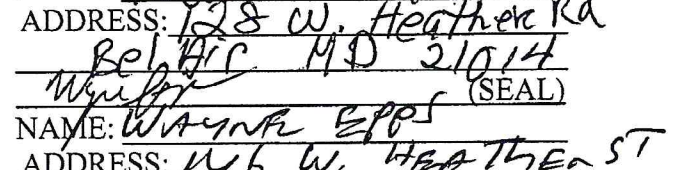 ADDRESS: 128 W. Heather Rd
Bel Air MD 21014
(SEAL)
NAME: WAYNE EPPS
ADDRESS: W. HEATHER ST